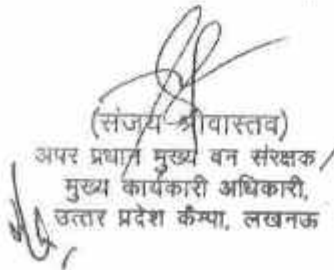 (संजय श्रीवास्तव)
अपर प्रधान मुख्य वन संरक्षक/
मुख्य कार्यकारी अधिकारी,
उत्तर प्रदेश कैम्पा, लखनऊ